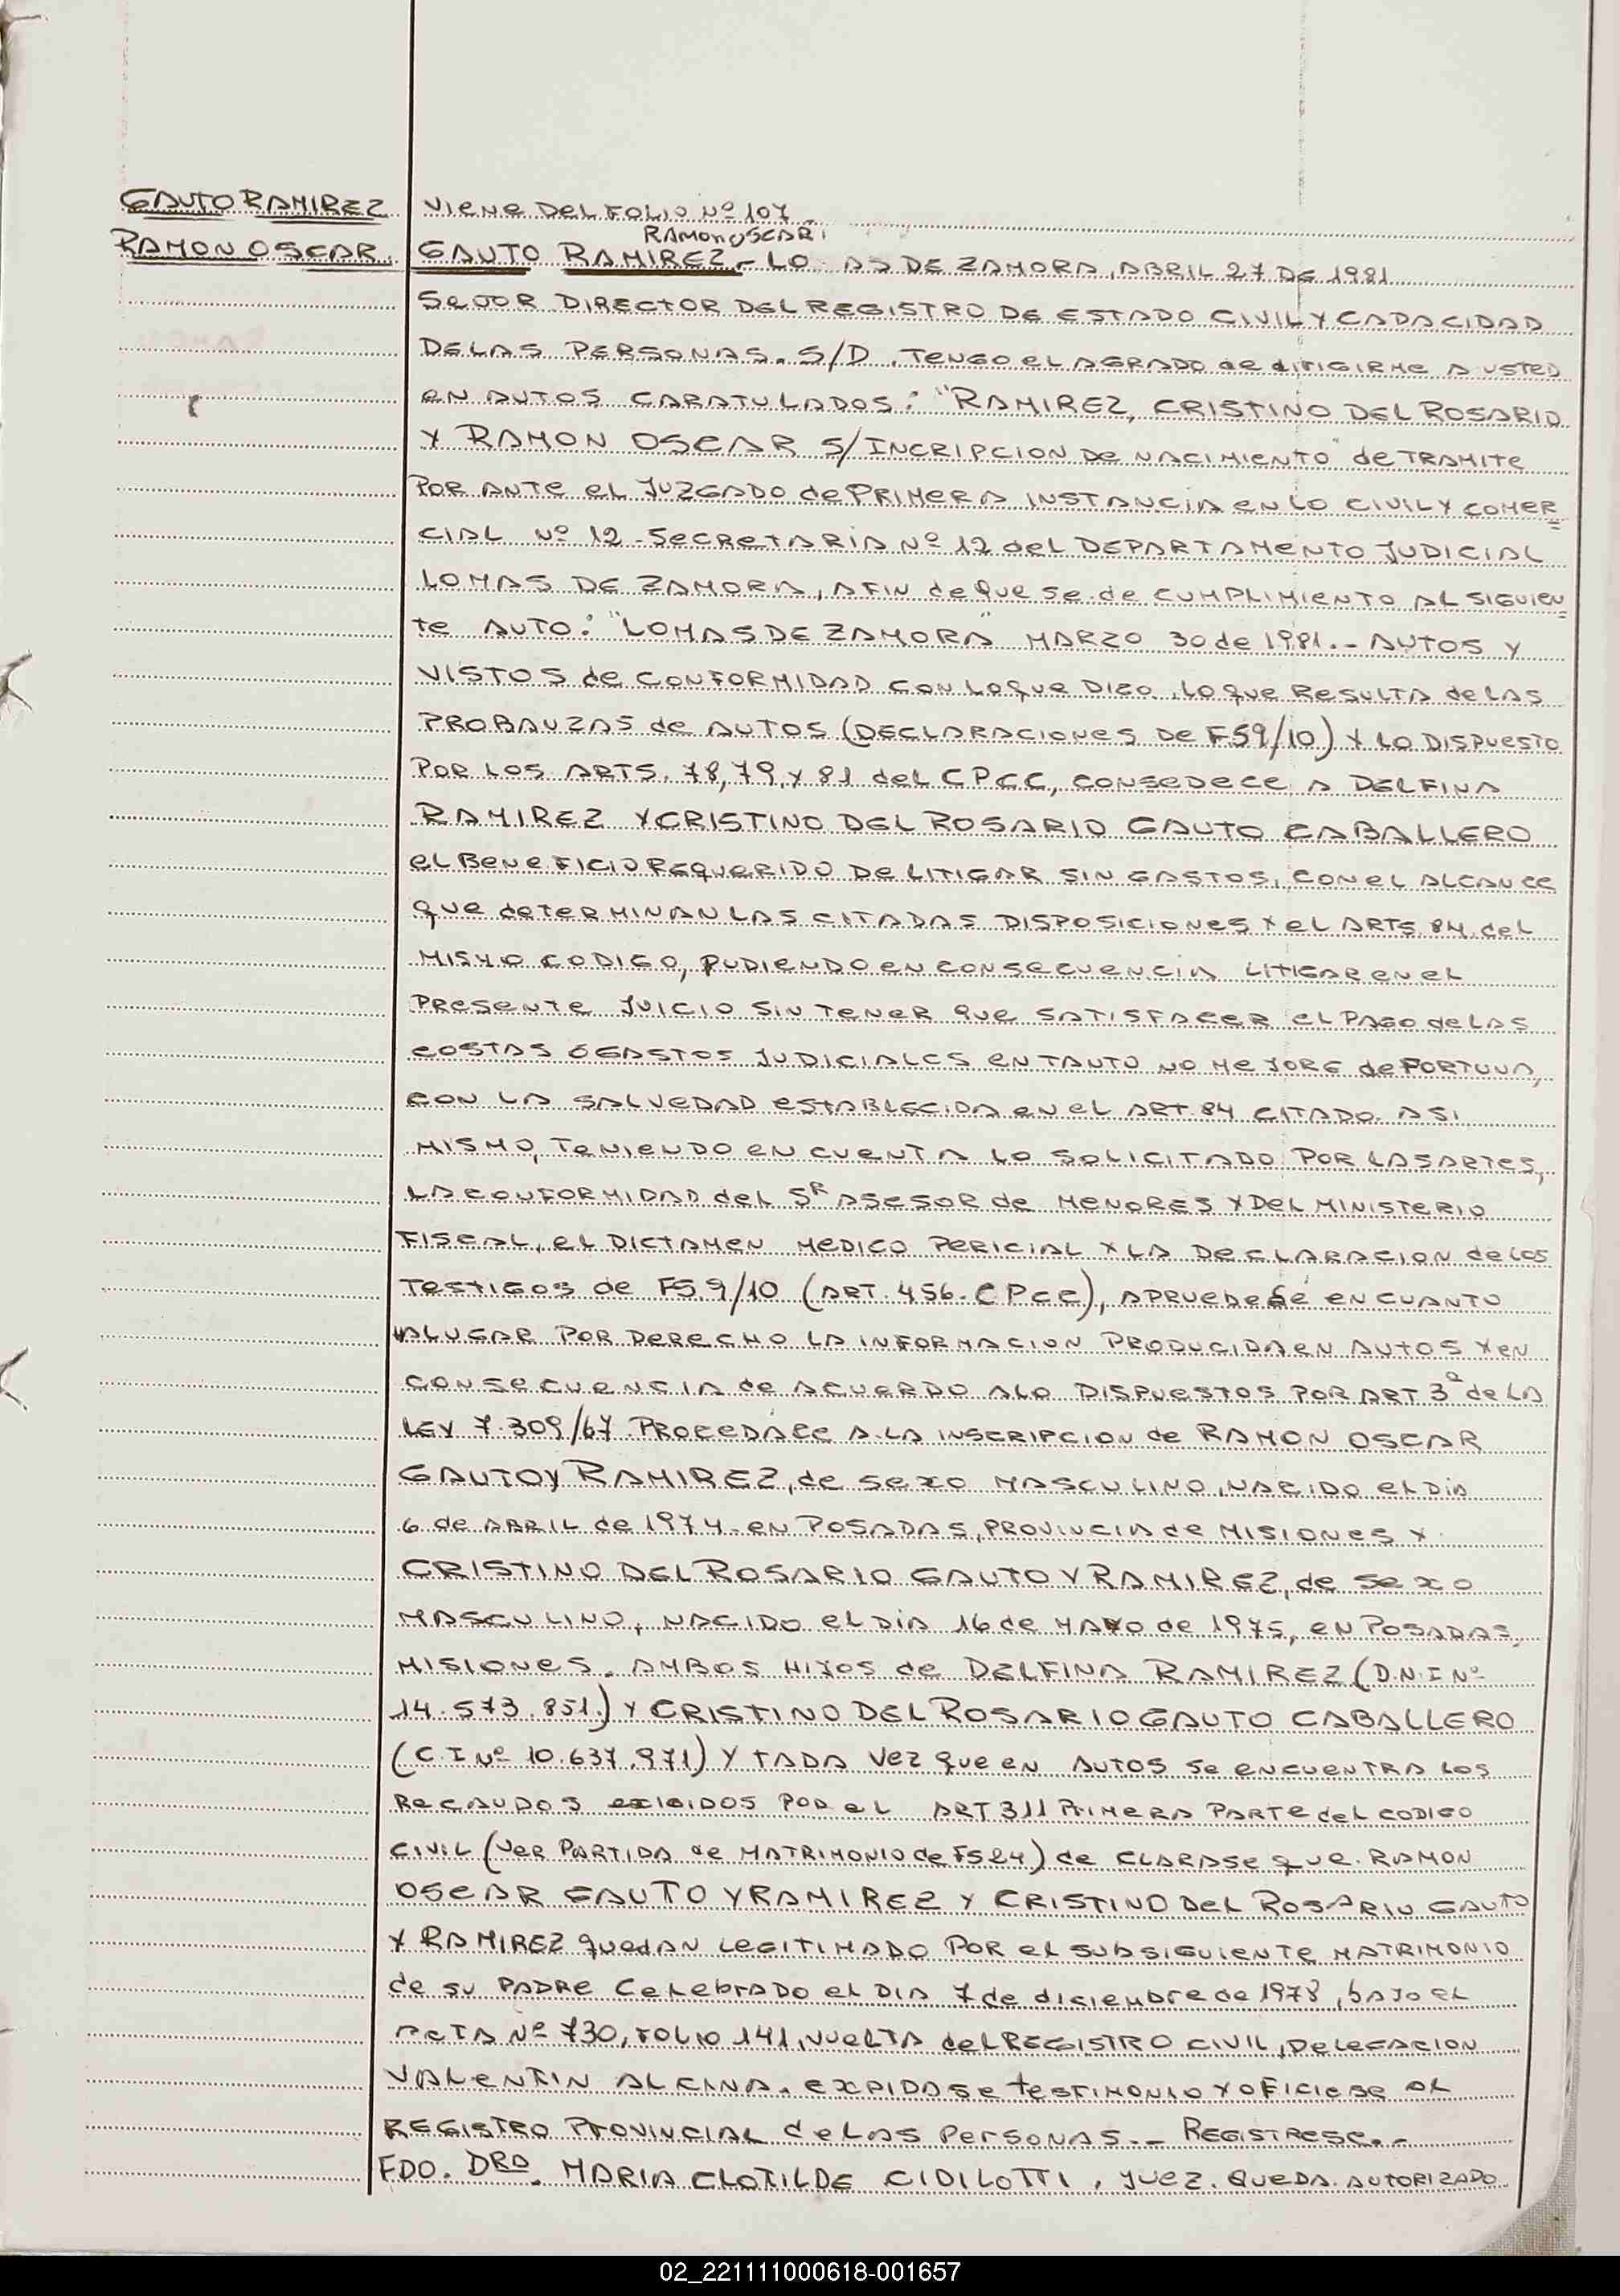 GAUTO RAMIREZ
RAMON OSCAR.
VIENE DEL FOLIO Nº 107
RAMON OSCAR.
GAUTO RAMIREZ.- LO AS DE ZAMORA, ABRIL 27 DE 1981
SEÑOR DIRECTOR DEL REGISTRO DE ESTADO CIVIL Y CAPACIDAD
DE LAS PERSONAS. S/D. TENGO EL AGRADO de dirigirme A USTED
EN AUTOS CARATULADOS: "RAMIREZ, CRISTINO DEL ROSARIO
Y RAMON OSCAR S/INCRIPCION DE NACIMIENTO" de TRAMITE
POR ANTE EL JUZGADO de PRIMERA INSTANCIA EN LO CIVIL Y COMER=
CIAL Nº 12 - SECRETARIA Nº 12 del DEPARTAMENTO JUDICIAL
LOMAS DE ZAMORA, A FIN de QUE SE de CUMPLIMIENTO AL SIGUIEN=
TE AUTO: "LOMAS DE ZAMORA" MARZO 30 de 1981.- AUTOS Y
VISTOS de CONFORMIDAD CON LO QUE DIZO, LO QUE RESULTA de LAS
PROBANZAS de AUTOS (DECLARACIONES DE FS9/10) Y LO DISPUESTO
POR LOS ARTS. 78, 79, Y 81 del CPCC, CONSEDECE A DELFINA
RAMIREZ Y CRISTINO DEL ROSARIO GAUTO CABALLERO
EL BENEFICIO REQUERIDO DE LITIGAR SIN GASTOS, CON EL ALCANCE
QUE deTERMINAN LAS CITADAS DISPOSICIONES Y EL ARTS 84 del
MISMO CODIGO, PUDIENDO EN CONSECUENCIA LITIGAR EN EL
PRESENTE JUICIO SIN TENER QUE SATISFACER EL PAGO de LAS
COSTAS Ó GASTOS JUDICIALES EN TANTO NO MEJORE de FORTUNA,
CON LA SALVEDAD ESTABLECIDA EN EL ART. 84 CITADO. ASI
MISMO, TENIENDO EN CUENTA LO SOLICITADO POR LAS ARTES,
LA CONFORMIDAD del SR ASESOR de MENORES Y DEL MINISTERIO
FISCAL, EL DICTAMEN MEDICO PERICIAL Y LA DECLARACION de LOS
TESTIGOS de FS.9/10 (ART. 456. CPCC), APRUEDESE EN CUANTO
HALUGAR POR DERECHO LA INFORMACION PRODUCIDA EN AUTOS Y EN
CONSECUENCIA de ACUERDO A LO DISPUESTOS POR ART 3ª de LA
LEY 7.309/67. PROCEDACE A LA INSCRIPCION de RAMON OSCAR
GAUTO Y RAMIREZ, de SEXO MASCULINO, NACIDO EL DIA
6 de ABRIL de 1974. EN POSADAS, PROVINCIA de MISIONES Y
CRISTINO DEL ROSARIO GAUTO Y RAMIREZ, de SEXO
MASCULINO, NACIDO EL DIA 16 de MAYO de 1975, EN POSADAS,
MISIONES. AMBOS HIJOS de DELFINA RAMIREZ (D.N.I Nº
14.573.851.) Y CRISTINO DEL ROSARIO GAUTO CABALLERO
(C.I Nº 10.637.971) Y TADA VEZ QUE EN AUTOS SE ENCUENTRA LOS
RECAUDOS EXIGIDOS POR EL ART 311 PRIMERA PARTE del CODIGO
CIVIL (VER PARTIDA de MATRIMONIO de FS24) de CLARASE QUE RAMON
OSCAR GAUTO Y RAMIREZ Y CRISTINO DEL ROSARIO GAUTO
Y RAMIREZ QUEDAN LEGITIMADO POR EL SUBSIGUIENTE MATRIMONIO
de SU PADRE CELEBRADO EL DIA 7 de diciembre de 1978, BAJO EL
ACTA Nº 730, FOLIO 141, VUELTA del REGISTRO CIVIL, DELEGACION
VALENTIN ALCINA. EXPIDASE TESTIMONIO Y OFICIESE AL
REGISTRO PROVINCIAL de LAS PERSONAS.- REGISTRESE.-
FDO. DRA. MARIA CLOTILDE CIDILOTTI, JUEZ. QUEDA AUTORIZADO
02_221111000618-001657